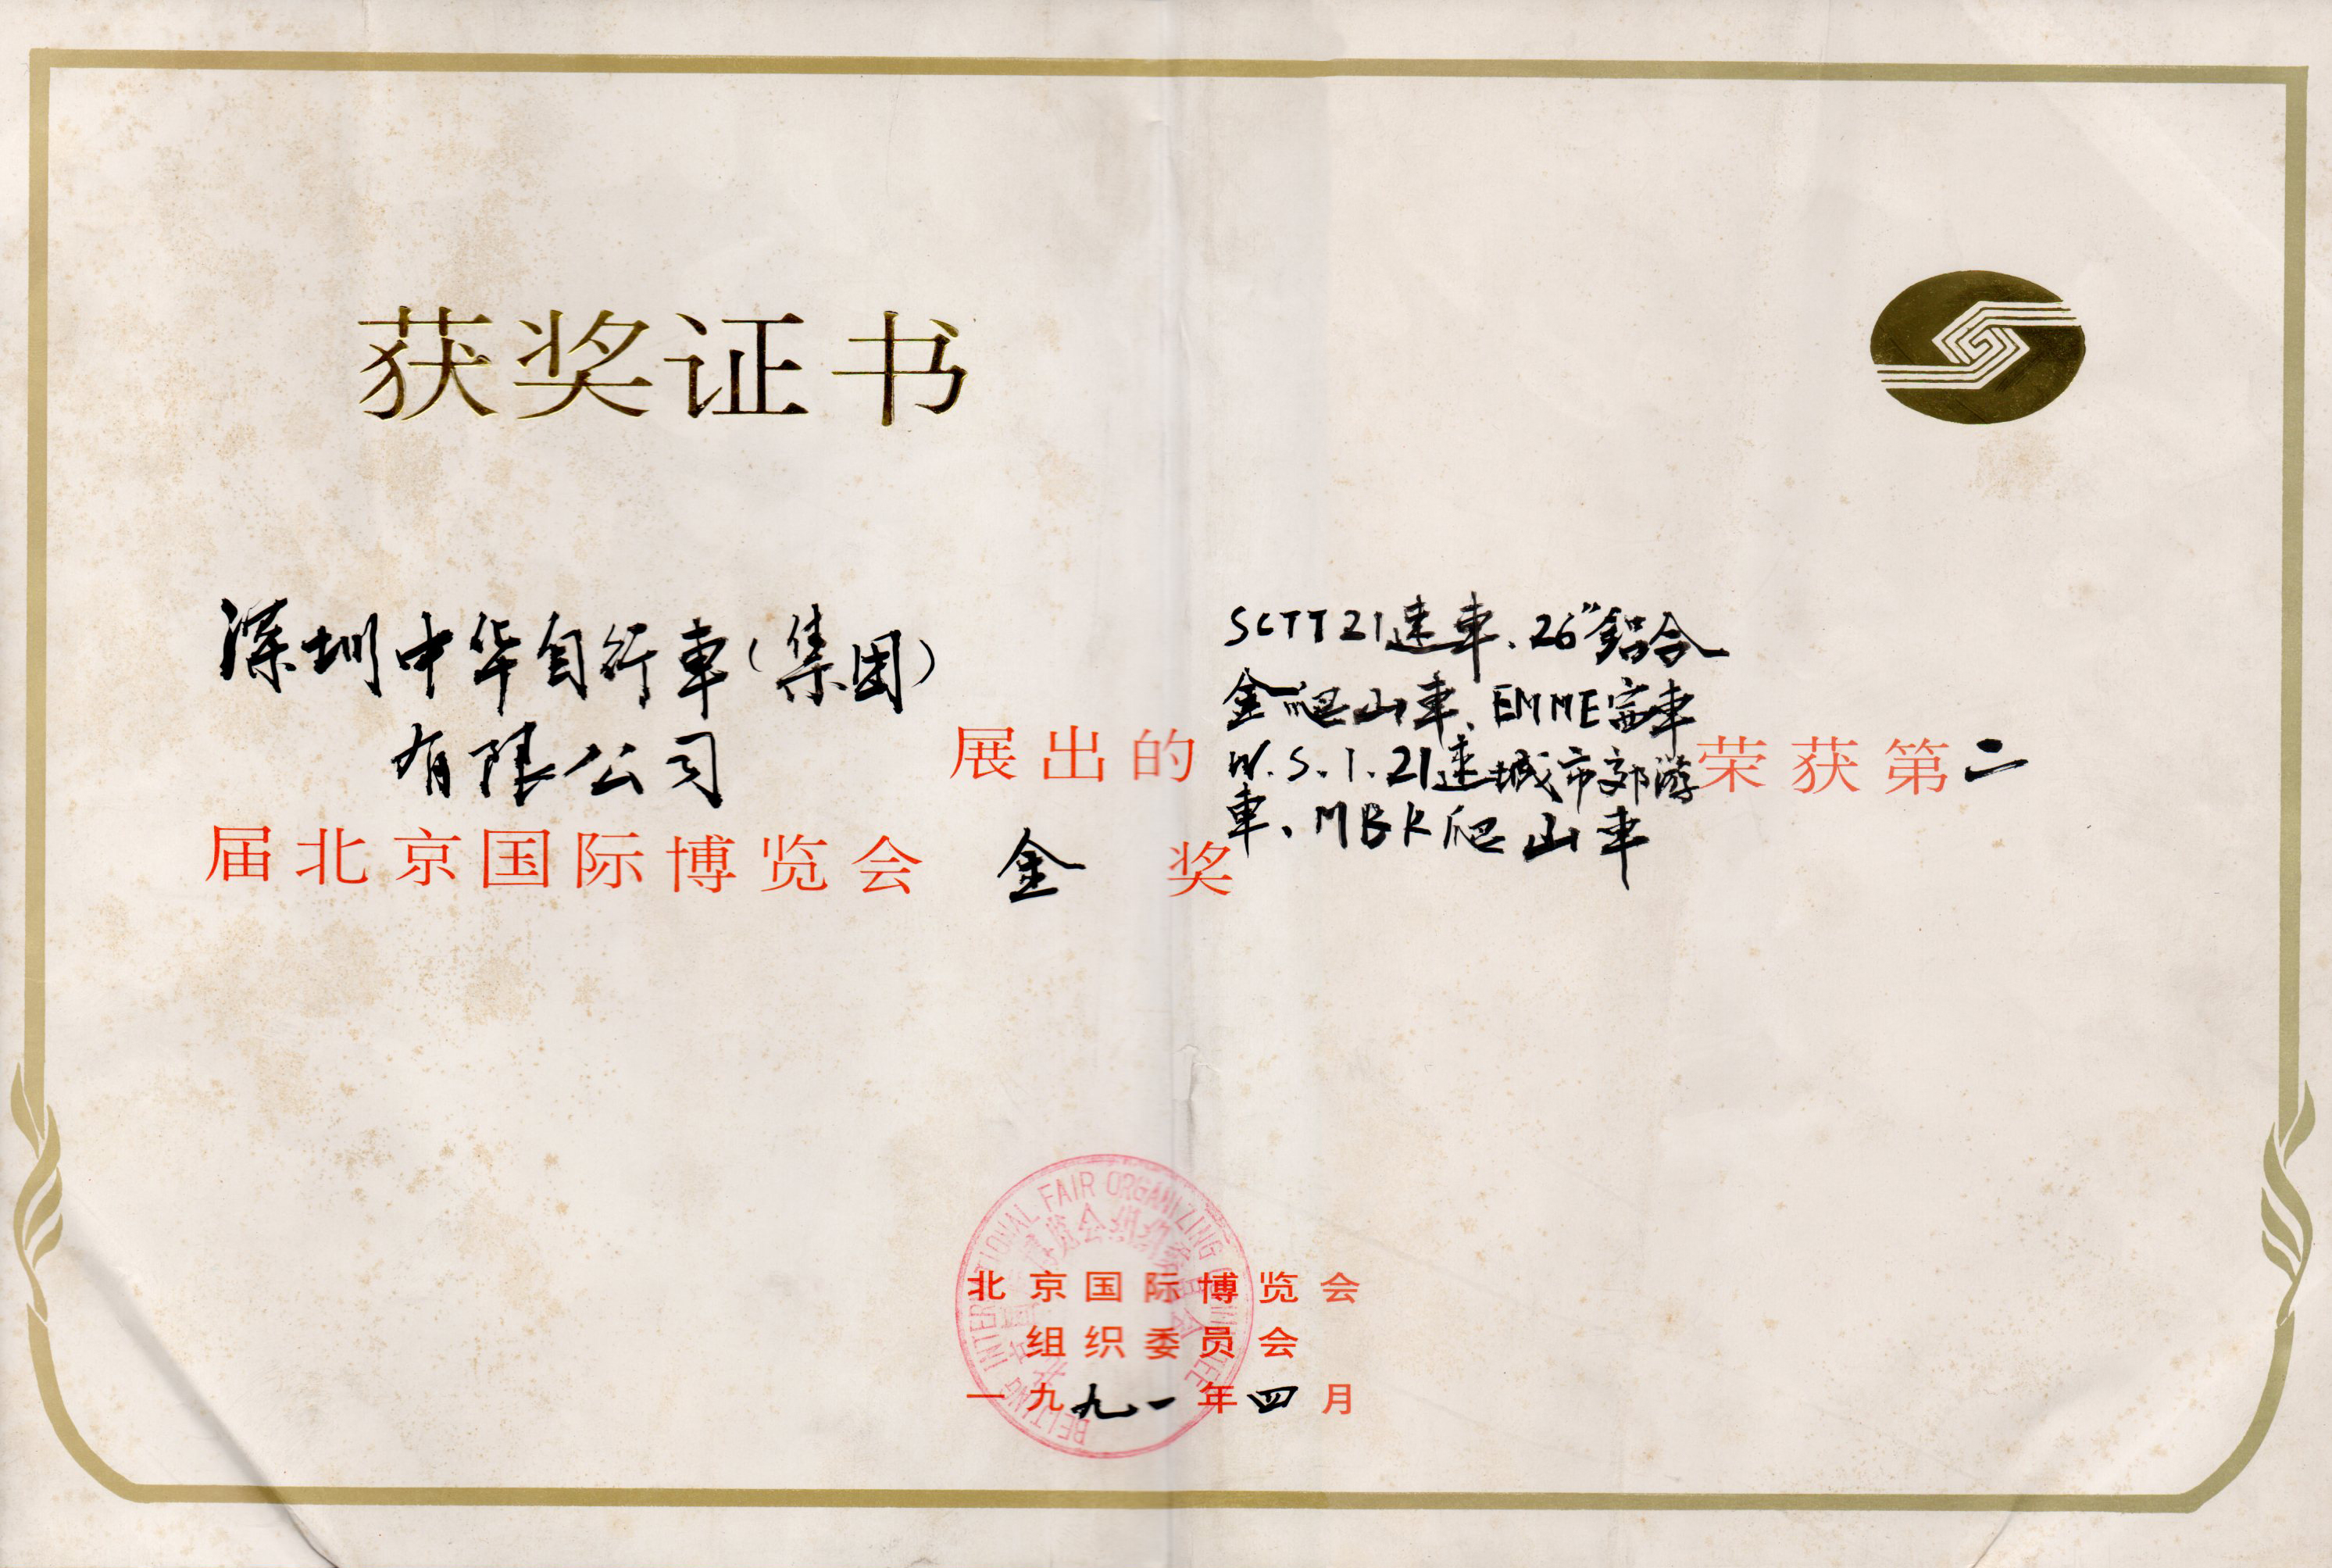 获奖证书
深圳中华自行車(集团)
有限公司
展出的
SCTT21速車、26"鋁合
金爬山車、EMME 車
W.S.1.21速城市郊游
車、MBK爬山車
荣获第二
届北京国际博览会 金 奖
BEIJING INTERNATIONAL FAIR ORGANIZING COMMITTEE
北京国际博览会组织委员会
北京国际博览会
组织委员会
一九九一年四月